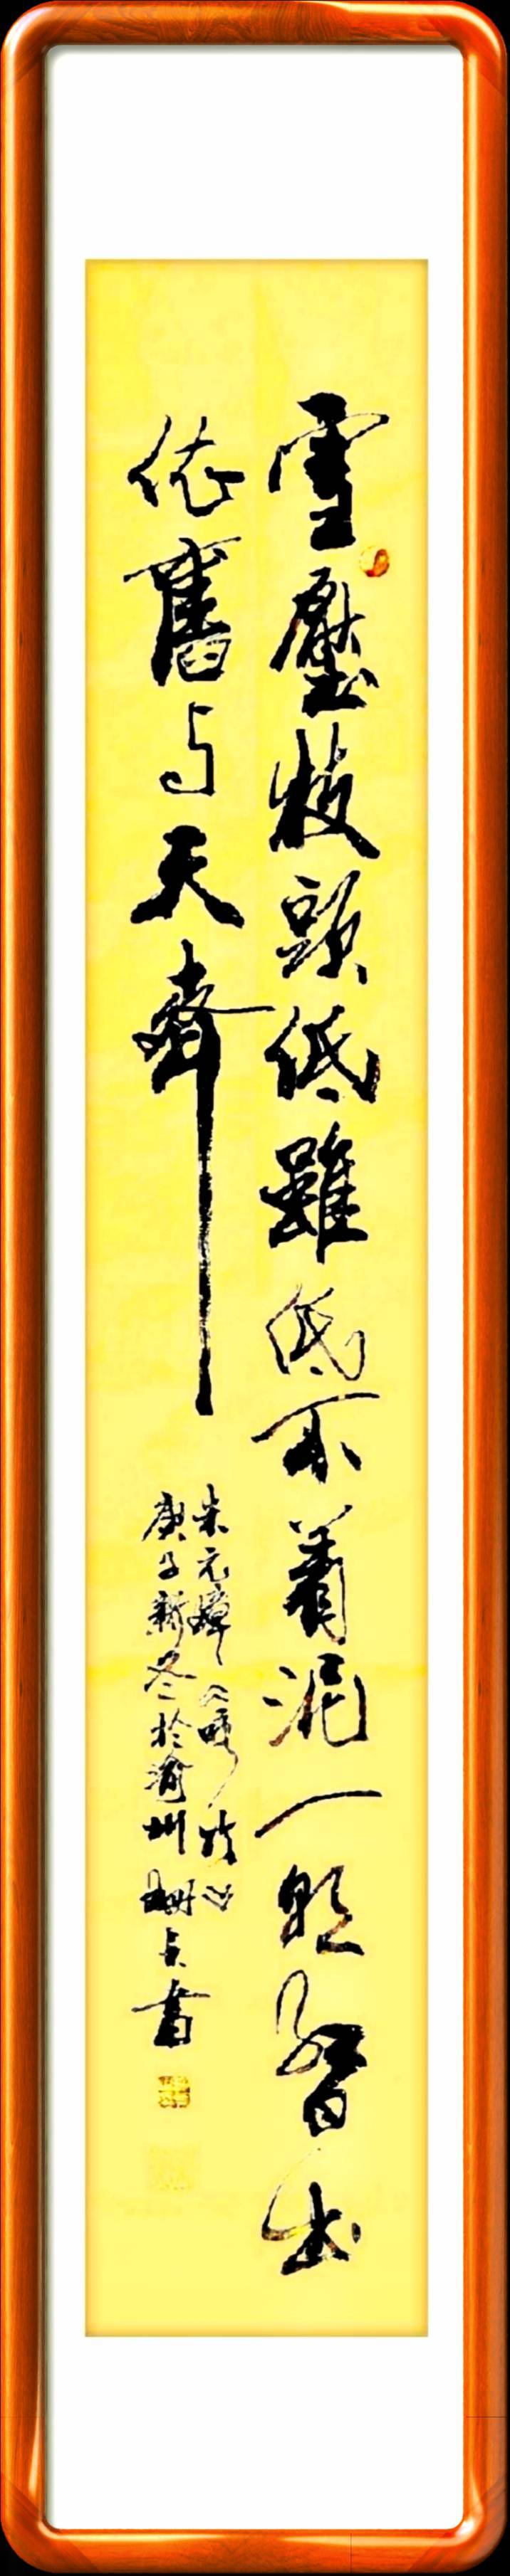 雪壓枝頭低雖低不着泥一朝紅日出
依舊与天齊
朱元璋咏竹
庚子新冬於渝州書